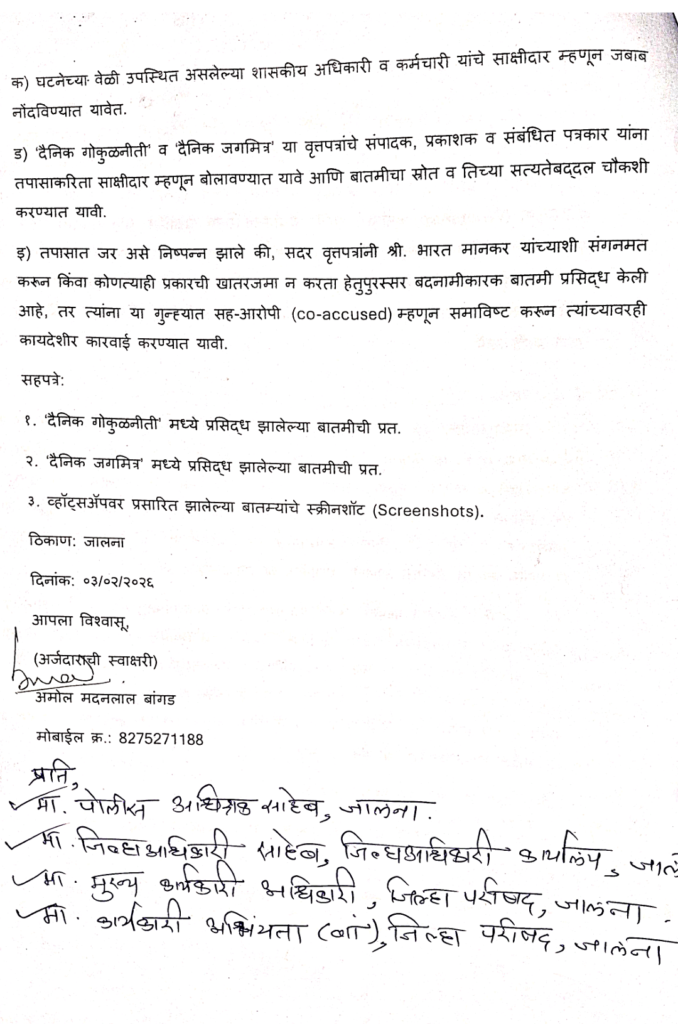 क) घटनेच्या वेळी उपस्थित असलेल्या शासकीय अधिकारी व कर्मचारी यांचे साक्षीदार म्हणून जबाब
नोंदविण्यात यावेत.
ड) 'दैनिक गोकुळनीती' व 'दैनिक जगमित्र' या वृत्तपत्रांचे संपादक, प्रकाशक व संबंधित पत्रकार यांना
तपासाकरिता साक्षीदार म्हणून बोलावण्यात यावे आणि बातमीचा स्रोत व तिच्या सत्यतेबद्दल चौकशी
करण्यात यावी.
इ) तपासात जर असे निष्पन्न झाले की, सदर वृत्तपत्रांनी श्री. भारत मानकर यांच्याशी संगनमत
करून किंवा कोणत्याही प्रकारची खातरजमा न करता हेतुपुरस्सर बदनामीकारक बातमी प्रसिद्ध केली
आहे, तर त्यांना या गुन्ह्यात सह-आरोपी (co-accused) म्हणून समाविष्ट करून त्यांच्यावरही
कायदेशीर कारवाई करण्यात यावी.
सहपत्रे:
१. 'दैनिक गोकुळनीती' मध्ये प्रसिद्ध झालेल्या बातमीची प्रत.
२. 'दैनिक जगमित्र' मध्ये प्रसिद्ध झालेल्या बातमीची प्रत.
३. व्हॉट्सॲपवर प्रसारित झालेल्या बातम्यांचे स्क्रीनशॉट (Screenshots).
ठिकाण: जालना
दिनांक: ०३/०२/२०२६
आपला विश्वासू,
(अर्जदाराची स्वाक्षरी)
अमोल मदनलाल बांगड
मोबाईल क्र.: 8275271188
प्रति,
मा. पोलीस अधिक्षक साहेब, जालना.
मा. जिल्हाअधिकारी साहेब, जिल्हाअधिकारी कार्यालय, जाल
मा. मुख्य कार्यकारी अधिकारी, जिल्हा परीषद, जालना.
मा. कार्यकारी अभियंता (बां), जिल्हा परीषद, जालना